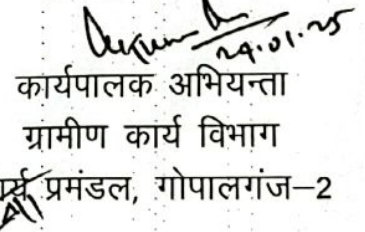 24.01.25
कार्यपालक अभियन्ता
ग्रामीण कार्य विभाग
प्रमंडल, गोपालगंज–2